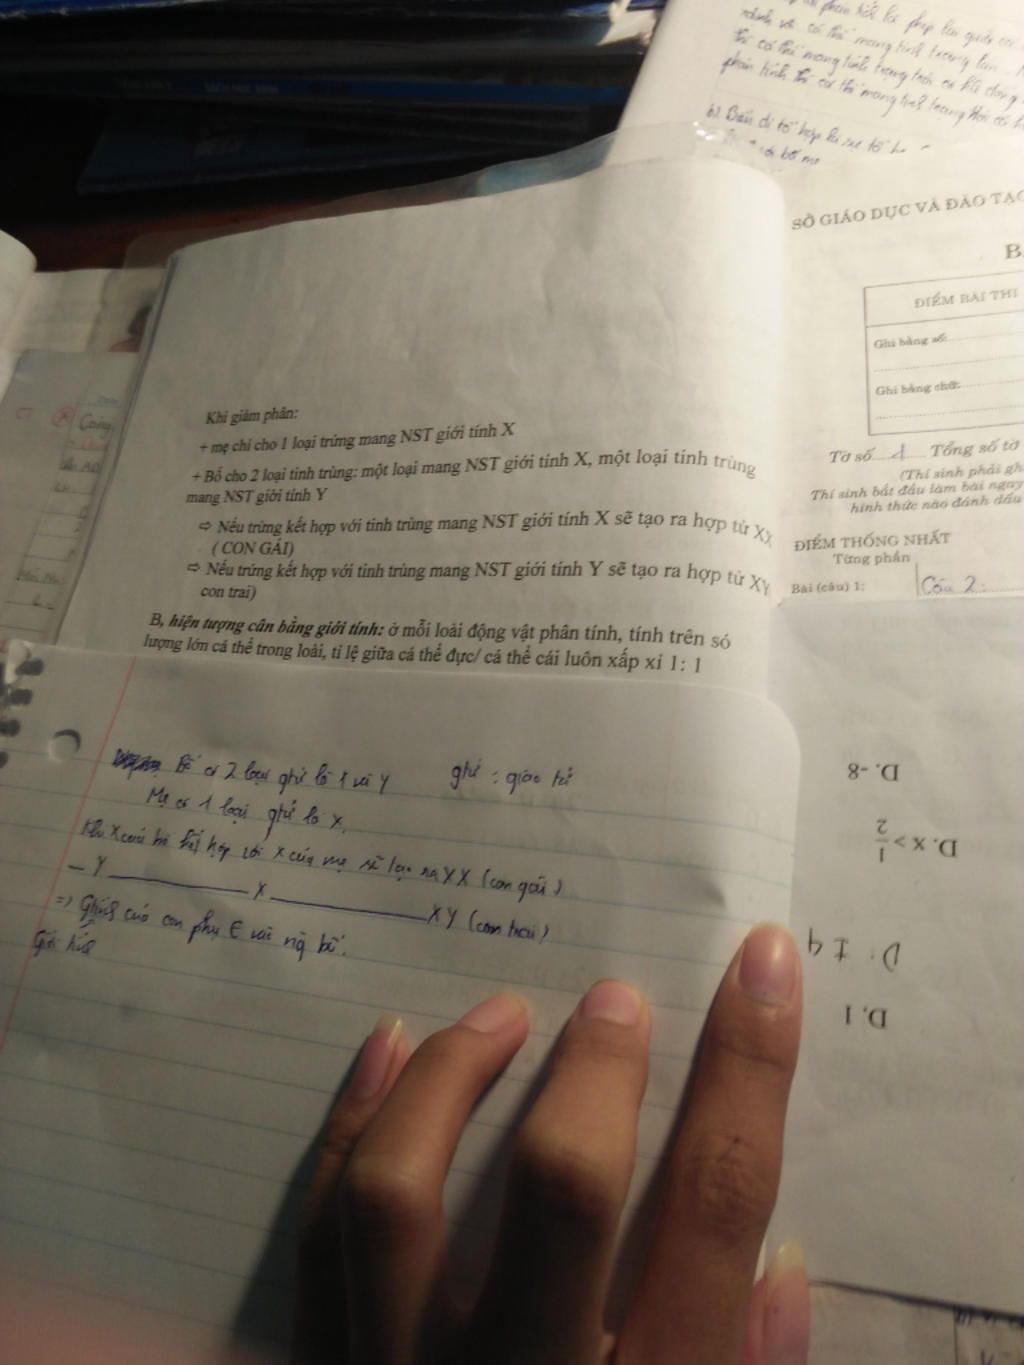 mang tính trạng
b) Biến dị tổ hợp là sự tổ h
bố mẹ
SÁCH HỌC SINH
SỞ GIÁO DỤC VÀ ĐÀO TẠO
ĐIỂM BÀI THI
Ghi bằng số:
Ghi bằng chữ:
Tờ số 1 Tổng số tờ
(Thí sinh phải gh
Thí sinh bắt đầu làm bài ngay
hình thức nào đánh dấu
ĐIỂM THỐNG NHẤT
Từng phần
Bài (câu) 1:
Câu 2:
Khi giảm phân:
+ mẹ chỉ cho 1 loại trứng mang NST giới tính X
+ Bố cho 2 loại tinh trùng: một loại mang NST giới tính X, một loại tinh trùng
mang NST giời tính Y
⇨ Nếu trứng kết hợp với tinh trùng mang NST giới tính X sẽ tạo ra hợp tử XX
( CON GÁI)
⇨ Nếu trứng kết hợp với tinh trùng mang NST giới tính Y sẽ tạo ra hợp tử XY
con trai)
B, hiện tượng cân bằng giới tính: ở mỗi loài động vật phân tính, tính trên só
lượng lớn cá thể trong loài, tỉ lệ giữa cá thể đực/ cá thể cái luôn xấp xỉ 1: 1
Bố có 2 loại gtử là X và Y gtử : giao tử
Mẹ có 1 loại gtử là X.
Khi X của bố kết hợp với X của mẹ sẽ tạo ra XX (con gái)
– Y ――― X ――― XY (con trai)
=> Gtính của con phụ ∈ vào ng bố.
Giới tính
D. -8
D. x > 1/2
D. ± 9
D. 1